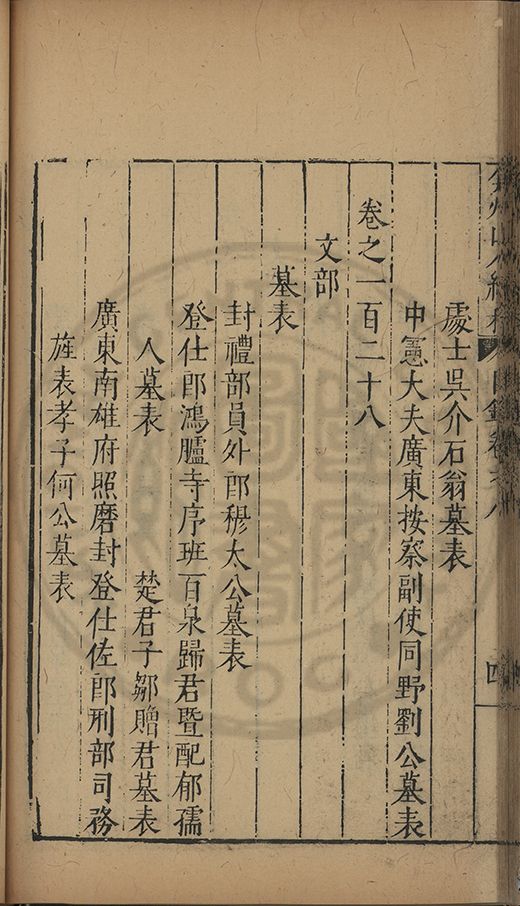 弇州山人續稿 目錄卷之 四
處士吳介石翁墓表
中憲大夫廣東按察副使同野劉公墓表
卷之一百二十八
文部
墓表
封禮部員外郎穆太公墓表
登仕郎鴻臚寺序班百泉歸君暨配郁孺
人墓表 楚君子鄒贈君墓表
廣東南雄府照磨封登仕佐郎刑部司務
旌表孝子何公墓表